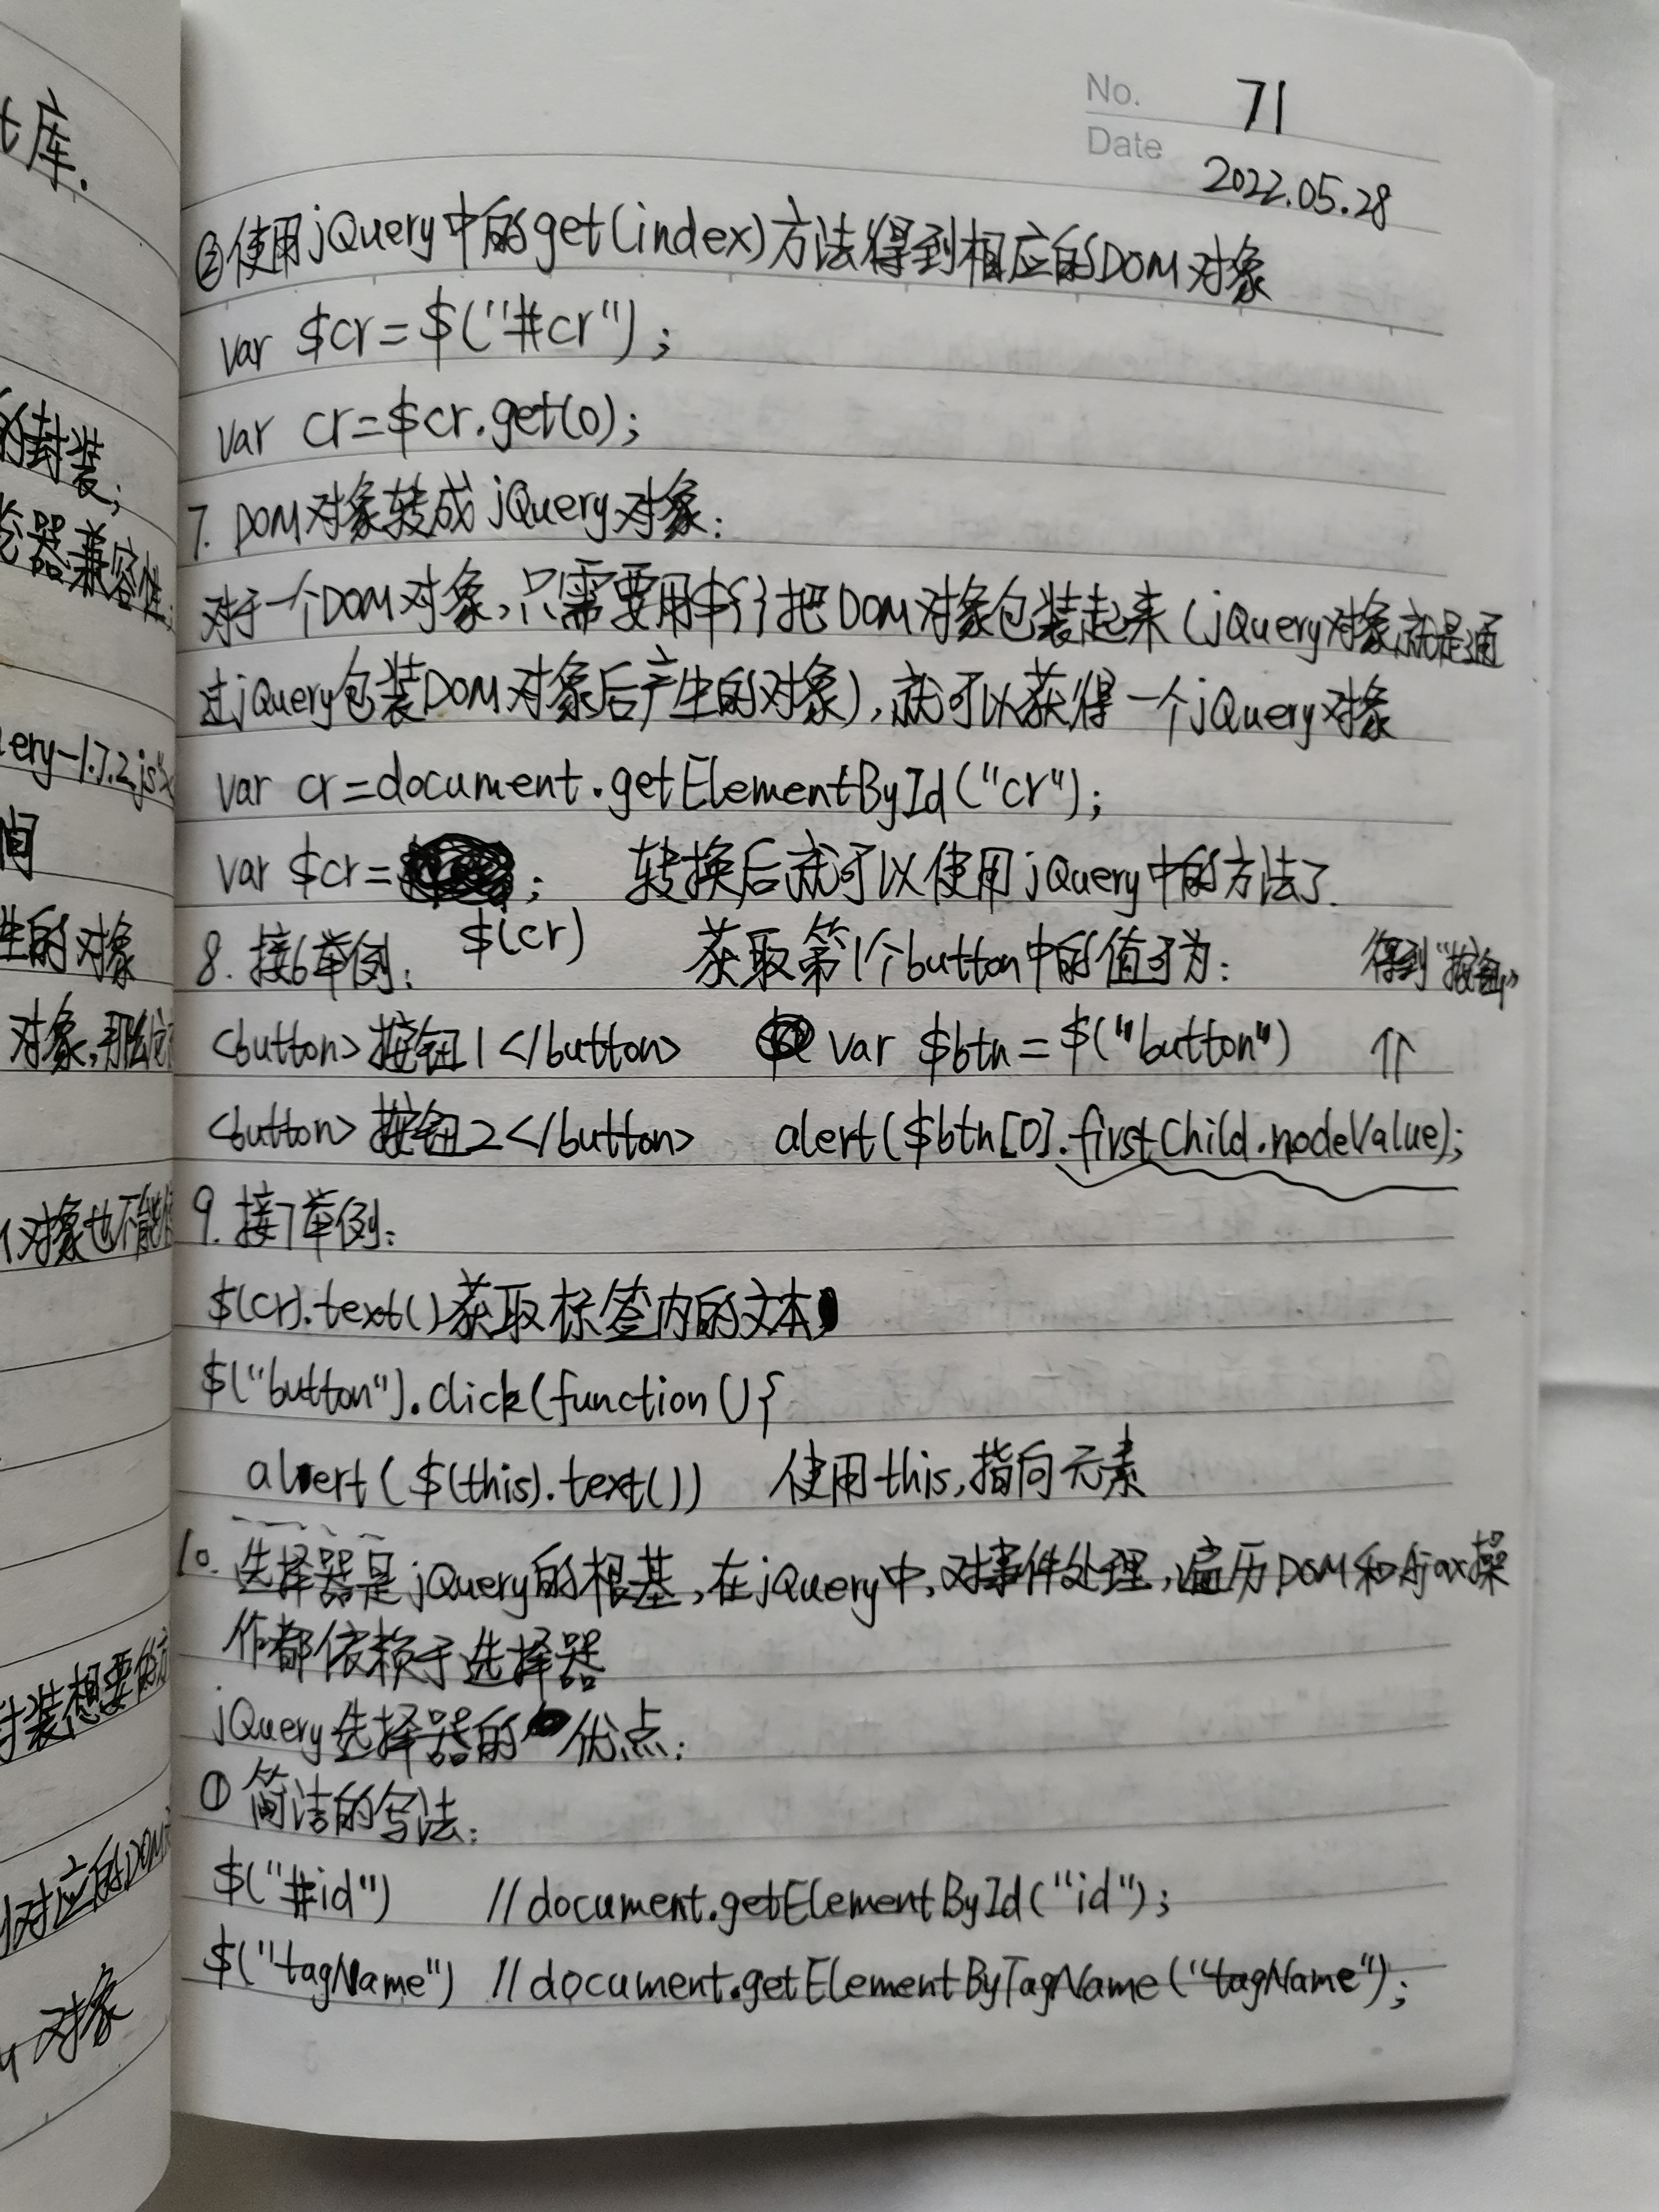 t库.
的封装;
览器兼容性;
uery-1.7.2.js"
间
生的对象
对象,那么
对象也不能
封装想要的方
对应的DOM
对象
No. 71
Date 2022.05.28
②使用jQuery中的get(index)方法得到相应的DOM对象
var $cr=$("#cr");
var cr=$cr.get(0);
7. DOM对象转成jQuery对象:
对于一个DOM对象,只需要用$()把DOM对象包装起来(jQuery对象就是通
过jQuery包装DOM对象后产生的对象),就可以获得一个jQuery对象
var cr=document.getElementById("cr");
var $cr= ; 转换后就可以使用jQuery中的方法了.
8. 接6举例: $(cr) 获取第1个button中的值可为: 得到"按钮1"
<button>按钮1</button> var $btn=$("button") ⇈
<button>按钮2</button> alert($btn[0].firstChild.nodeValue);
9. 接7举例:
$(cr).text()获取标签内的文本
$("button").click(function(){
alert($(this).text()) 使用this,指向元素
10. 选择器是jQuery的根基,在jQuery中,对事件处理,遍历DOM和Ajax操
作都依赖于选择器
jQuery选择器的优点:
①简洁的写法:
$("#id") //document.getElementById("id");
$("tagName") //document.getElementByTagName("tagName");